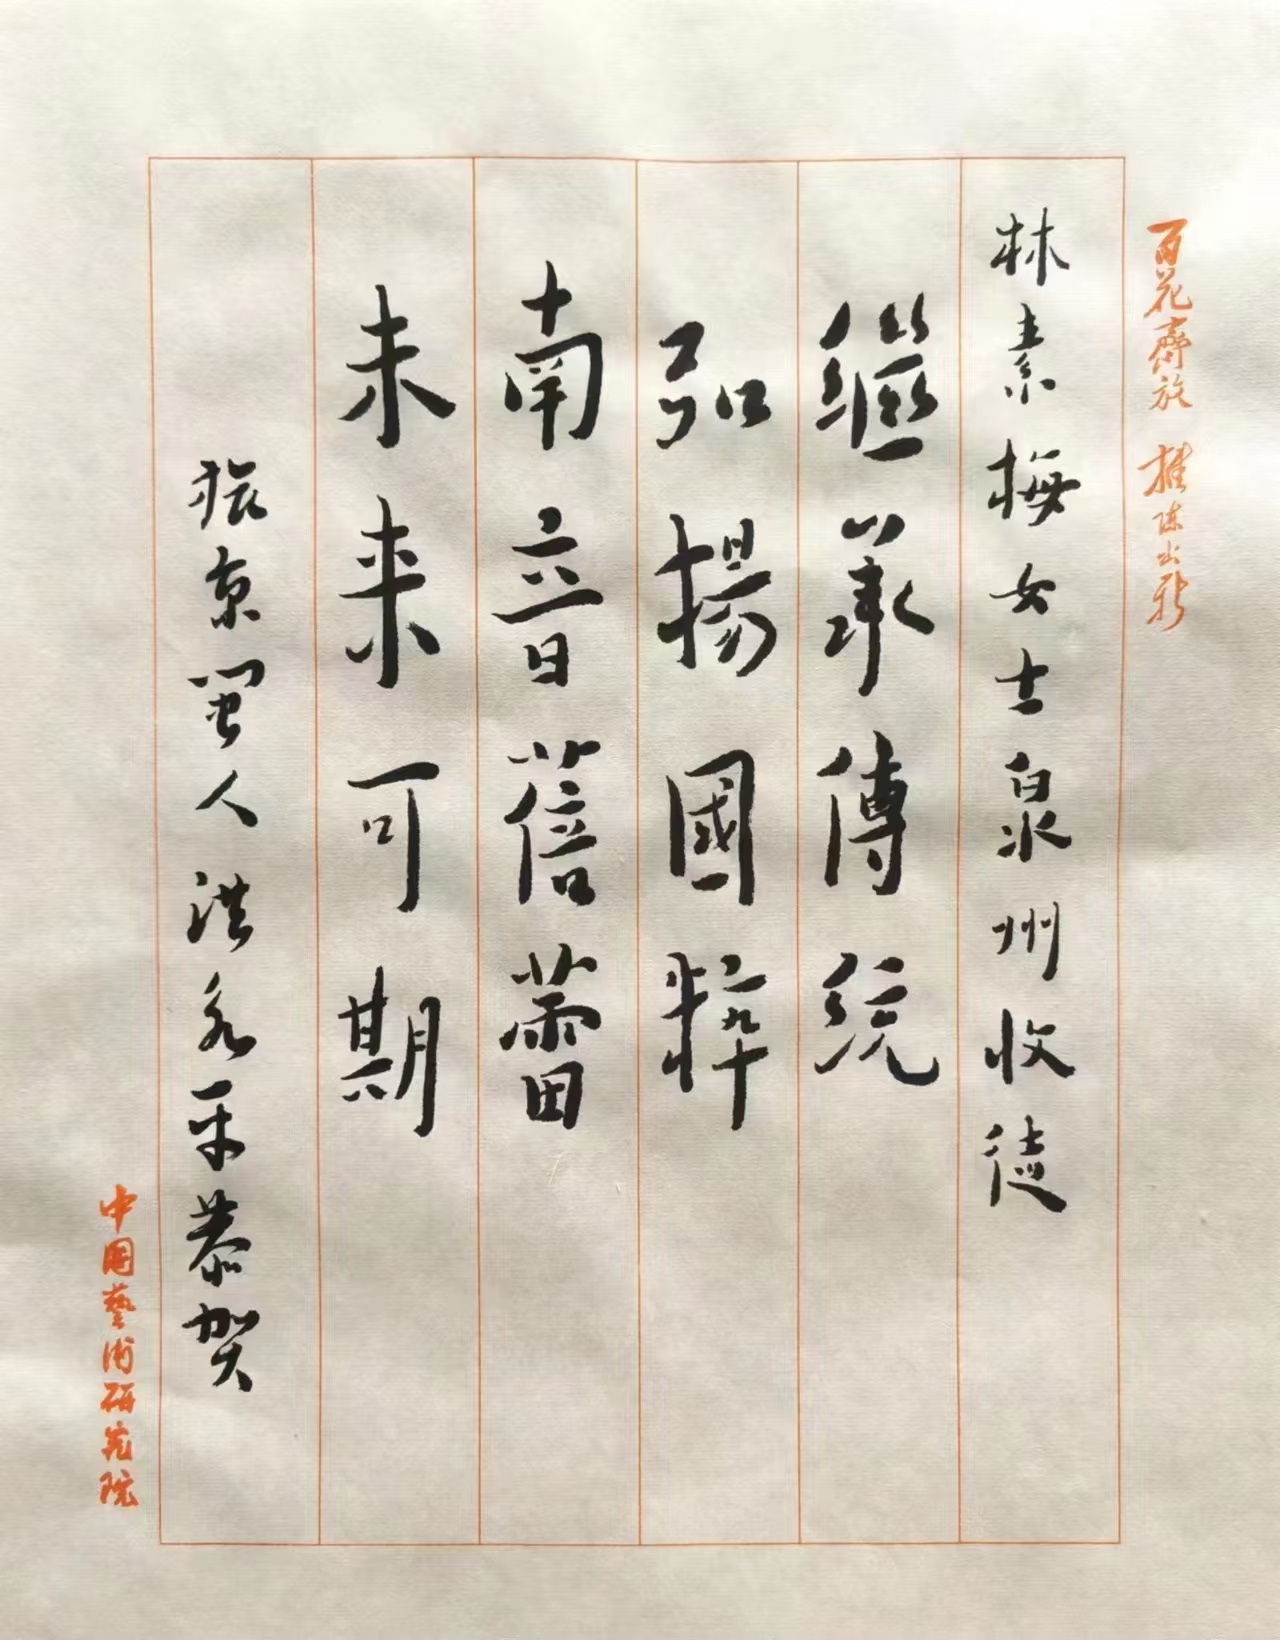 百花齊放 推陈出新
林素梅女士泉州收徒
繼承傳统
弘揚國粹
南音蓓蕾
未来可期
旅京闽人洪永平恭贺
中国藝術研究院